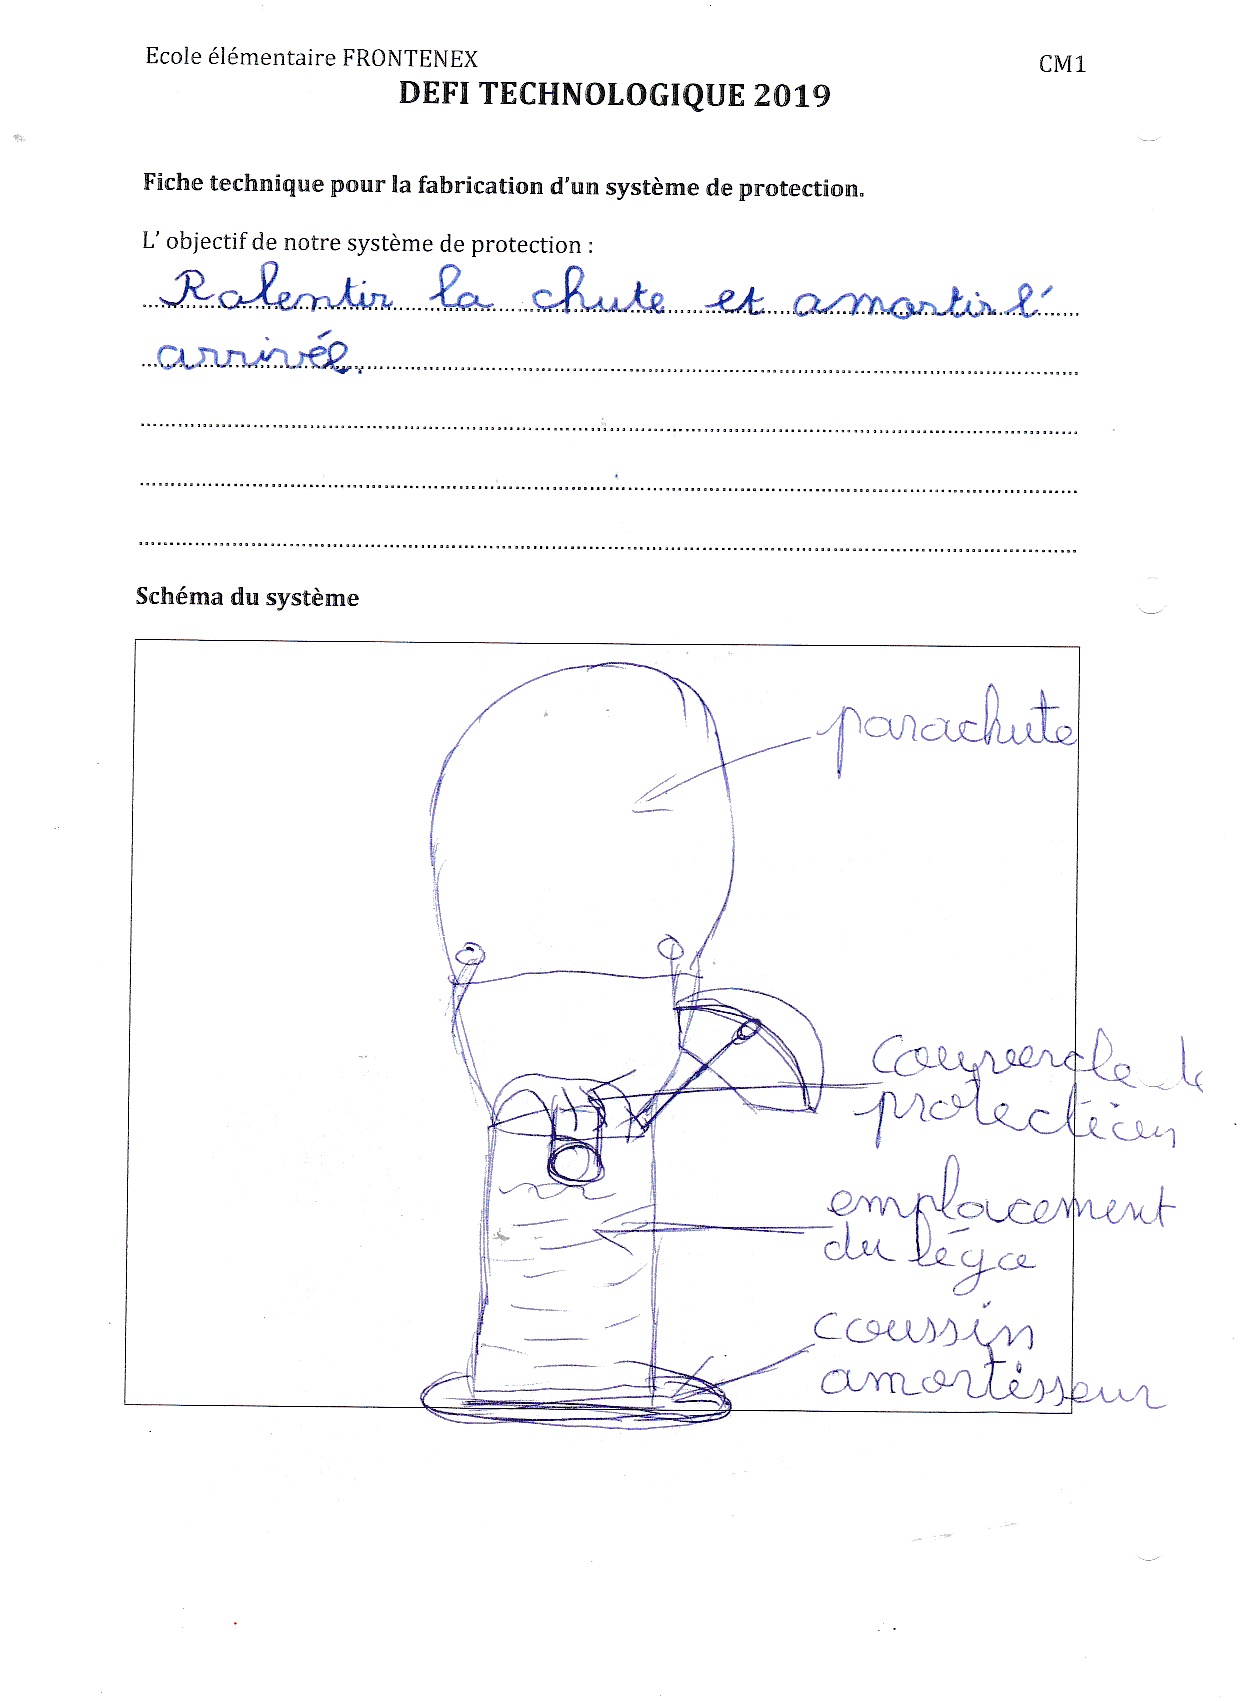 Ecole élémentaire FRONTENEX
CM1
DEFI TECHNOLOGIQUE 2019
Fiche technique pour la fabrication d'un système de protection.
L' objectif de notre système de protection :
Ralentir la chute et amortir l'
arrivée.
Schéma du système
parachute
couvercle de
protection
emplacement
du légo
coussin
amortisseur